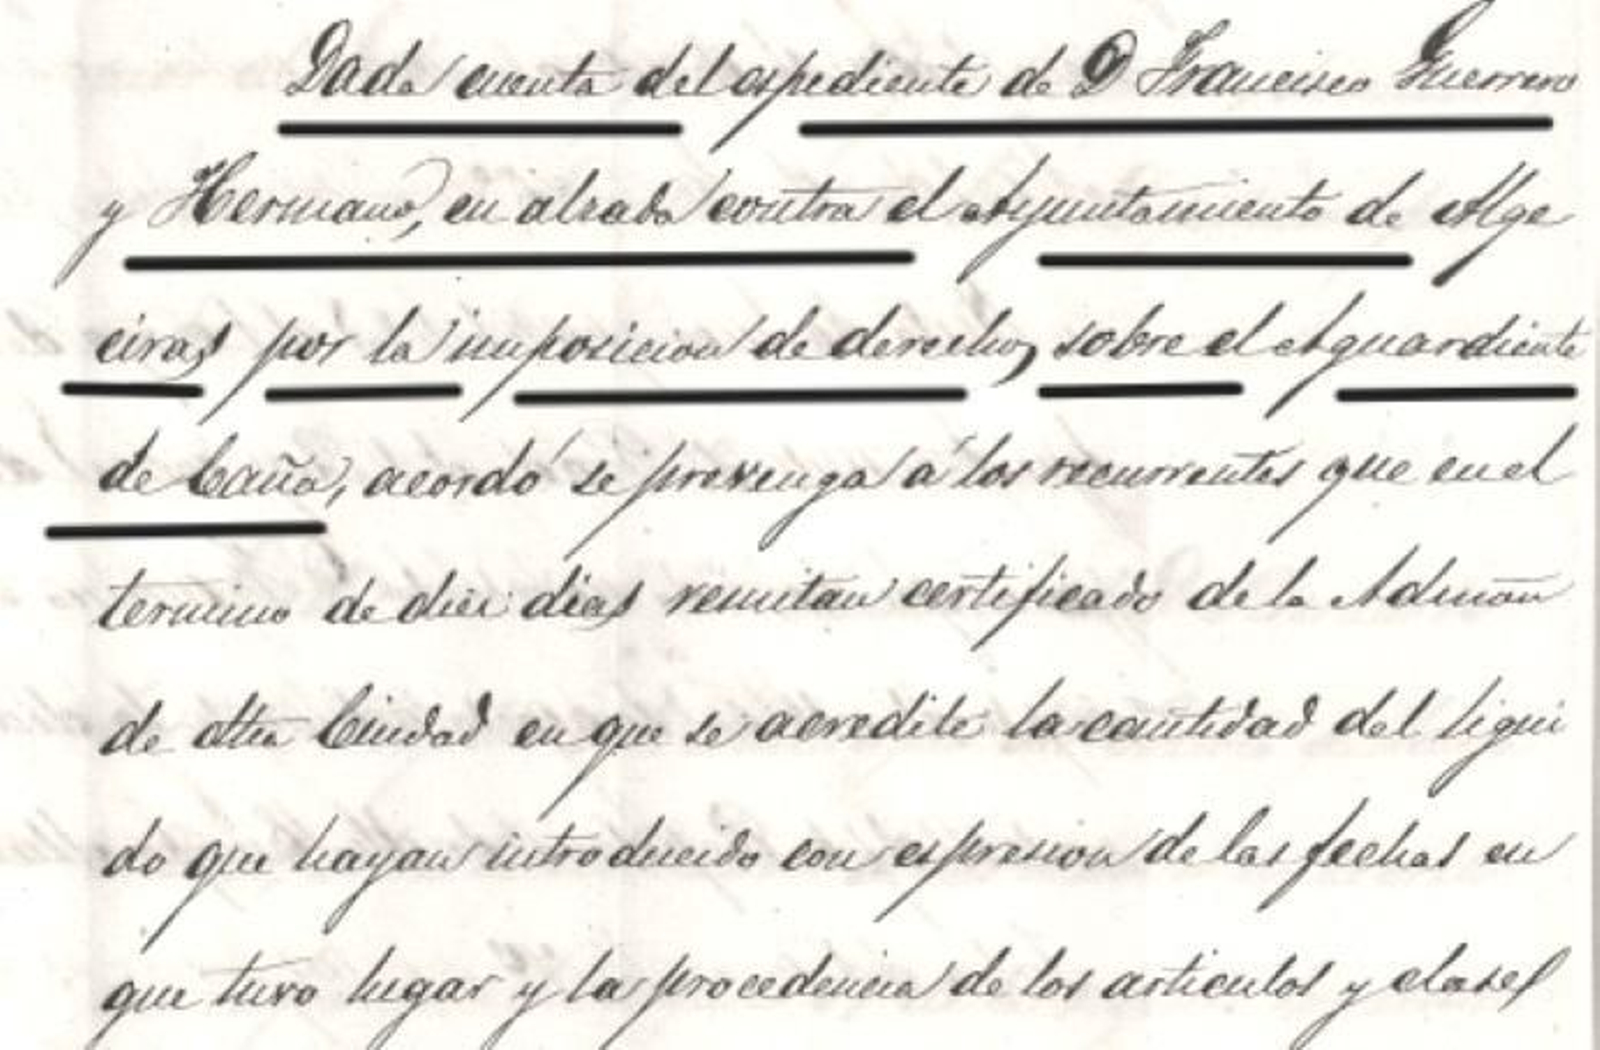 Dada cuenta del espediente de D Francisco Guerrero
y Hermano, en alzada contra el Ayuntamiento de Alge
ciras por la imposicion de derechos sobre el Aguardiente
de Caña, acordó se prevenga á los recurrentes que en el
termino de diez dias remitan certificado de la Admon
de dha Ciudad en que se acredite la cantidad del liqui
do que hayan introducido con espresion de las fechas en
que tuvo lugar y la procedencia de los articulos y clases